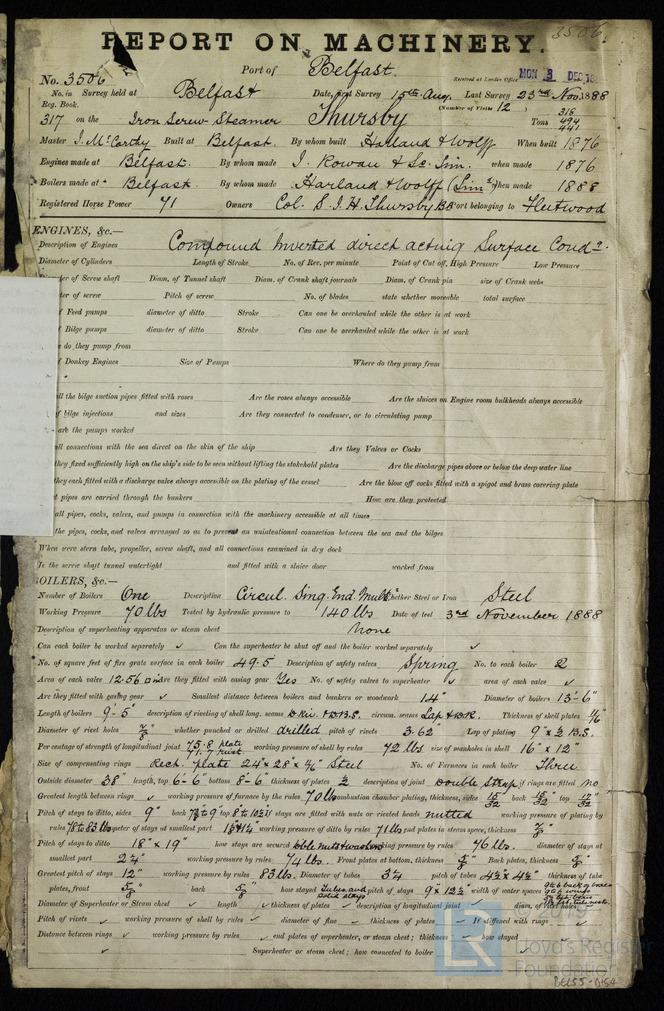 3506.
REPORT ON MACHINERY.
No. 3506 Port of Belfast. Received at London Office MON 3 DEC 18
No. in Survey held at Belfast Date, first Survey 15th Aug. Last Survey 23rd Nov. 1888
Reg. Book. (Number of Visits 12
317 on the Iron Screw Steamer Thursby Tons 316 494 441
Master J. McCarthy Built at Belfast. By whom built Harland & Wolff When built 1876
Engines made at Belfast. By whom made J. Rowan & Sc. Lim. when made 1876
Boilers made at Belfast. By whom made Harland & Wolff (Limd) When made 1888
Registered Horse Power 71 Owners Col. S. J. H. Thursby Port belonging to Fleetwood
ENGINES, &c.—
Description of Engines Compound Inverted direct acting Surface Condg.
Diameter of Cylinders Length of Stroke No. of Rev. per minute Point of Cut off, High Pressure Low Pressure
of Screw shaft Diam. of Tunnel shaft Diam. of Crank shaft journals Diam. of Crank pin size of Crank webs
of screw Pitch of screw No. of blades state whether moveable total surface
Feed pumps diameter of ditto Stroke Can one be overhauled while the other is at work
Bilge pumps diameter of ditto Stroke Can one be overhauled while the other is at work
do they pump from
Donkey Engines Size of Pumps Where do they pump from
all the bilge suction pipes fitted with roses Are the roses always accessible Are the sluices on Engine room bulkheads always accessible
bilge injections and sizes Are they connected to condenser, or to circulating pump
are the pumps worked
all connections with the sea direct on the skin of the ship Are they Valves or Cocks
they fixed sufficiently high on the ship's side to be seen without lifting the stokehold plates Are the discharge pipes above or below the deep water line
they each fitted with a discharge valve always accessible on the plating of the vessel Are the blow off cocks fitted with a spigot and brass covering plate
pipes are carried through the bunkers How are they protected
all pipes, cocks, valves, and pumps in connection with the machinery accessible at all times
the pipes, cocks, and valves arranged so as to prevent an unintentional connection between the sea and the bilges
When were stern tube, propeller, screw shaft, and all connections examined in dry dock
Is the screw shaft tunnel watertight and fitted with a sluice door worked from
BOILERS, &c.—
Number of Boilers One Description Circul. Sing. End. Mult. Whether Steel or Iron Steel
Working Pressure 70 lbs Tested by hydraulic pressure to 140 lbs Date of test 3rd November 1888
Description of superheating apparatus or steam chest None
Can each boiler be worked separately ✓ Can the superheater be shut off and the boiler worked separately ✓
No. of square feet of fire grate surface in each boiler 49.5 Description of safety valves Spring No. to each boiler 2
Area of each valve 12.56 Are they fitted with easing gear Yes No. of safety valves to superheater ✓ area of each valve ✓
Are they fitted with easing gear ✓ Smallest distance between boilers and bunkers or woodwork 14" Diameter of boilers 13'-6"
Length of boilers 9'-5" description of riveting of shell long. seams D Riv. & D.B.S. circum. seams Lap & D.R. Thickness of shell plates
Diameter of rivet holes 7/8" whether punched or drilled drilled pitch of rivets 3.62" Lap of plating 9" x 1/2 B.S.
Per centage of strength of longitudinal joint 75.8 plate 71.7 rivet working pressure of shell by rules 72 lbs size of manholes in shell 16" x 12"
Size of compensating rings Rect. plate 24" x 28" x Steel No. of Furnaces in each Boiler Three
Outside diameter 38" length, top 6'-6" bottom 8'-6" thickness of plates 1/2 description of joint Double Strap if rings are fitted no
Greatest length between rings ✓ working pressure of furnace by the rules 70 lbs combustion chamber plating, thickness, sides 15/32 back 15/32" top 15/32
Pitch of stays to ditto, sides 9" back top If stays are fitted with nuts or riveted heads nutted working pressure of plating by
rules 78 to 83 lbs diameter of stays at smallest part working pressure of ditto by rules 71 lbs end plates in steam space, thickness 7/8"
Pitch of stays to ditto 18" x 19" how stays are secured Dble nuts & washers working pressure by rules 76 lbs. diameter of stays at
smallest part 2 1/4" working pressure by rules 74 lbs. Front plates at bottom, thickness Back plates, thickness
Greatest pitch of stays 12" working pressure by rules 83 lbs. Diameter of tubes 3 1/4 pitch of tubes 4 1/2" x 4 1/2" thickness of tube
plates, front back how stayed Tubes and solid stays pitch of stays 9" x 13 1/2" width of water spaces
Diameter of Superheater or Steam chest ✓ length ✓ thickness of plates ✓ description of longitudinal joint ✓ diam. of rivet holes
Pitch of rivets ✓ working pressure of shell by rules ✓ diameter of flue ✓ thickness of plates ✓ If stiffened with rings ✓
Distance between rings ✓ working pressure by rules ✓ end plates of superheater, or steam chest; thickness ✓ how stayed
✓ Superheater or steam chest; how connected to boiler ✓
LR
Lloyd's Register
Foundation
BEL55-0154